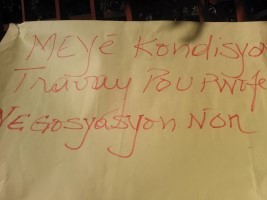 MEYÉ Kondisyo
Travay POU PWOfe
NEGOSYASYON NON